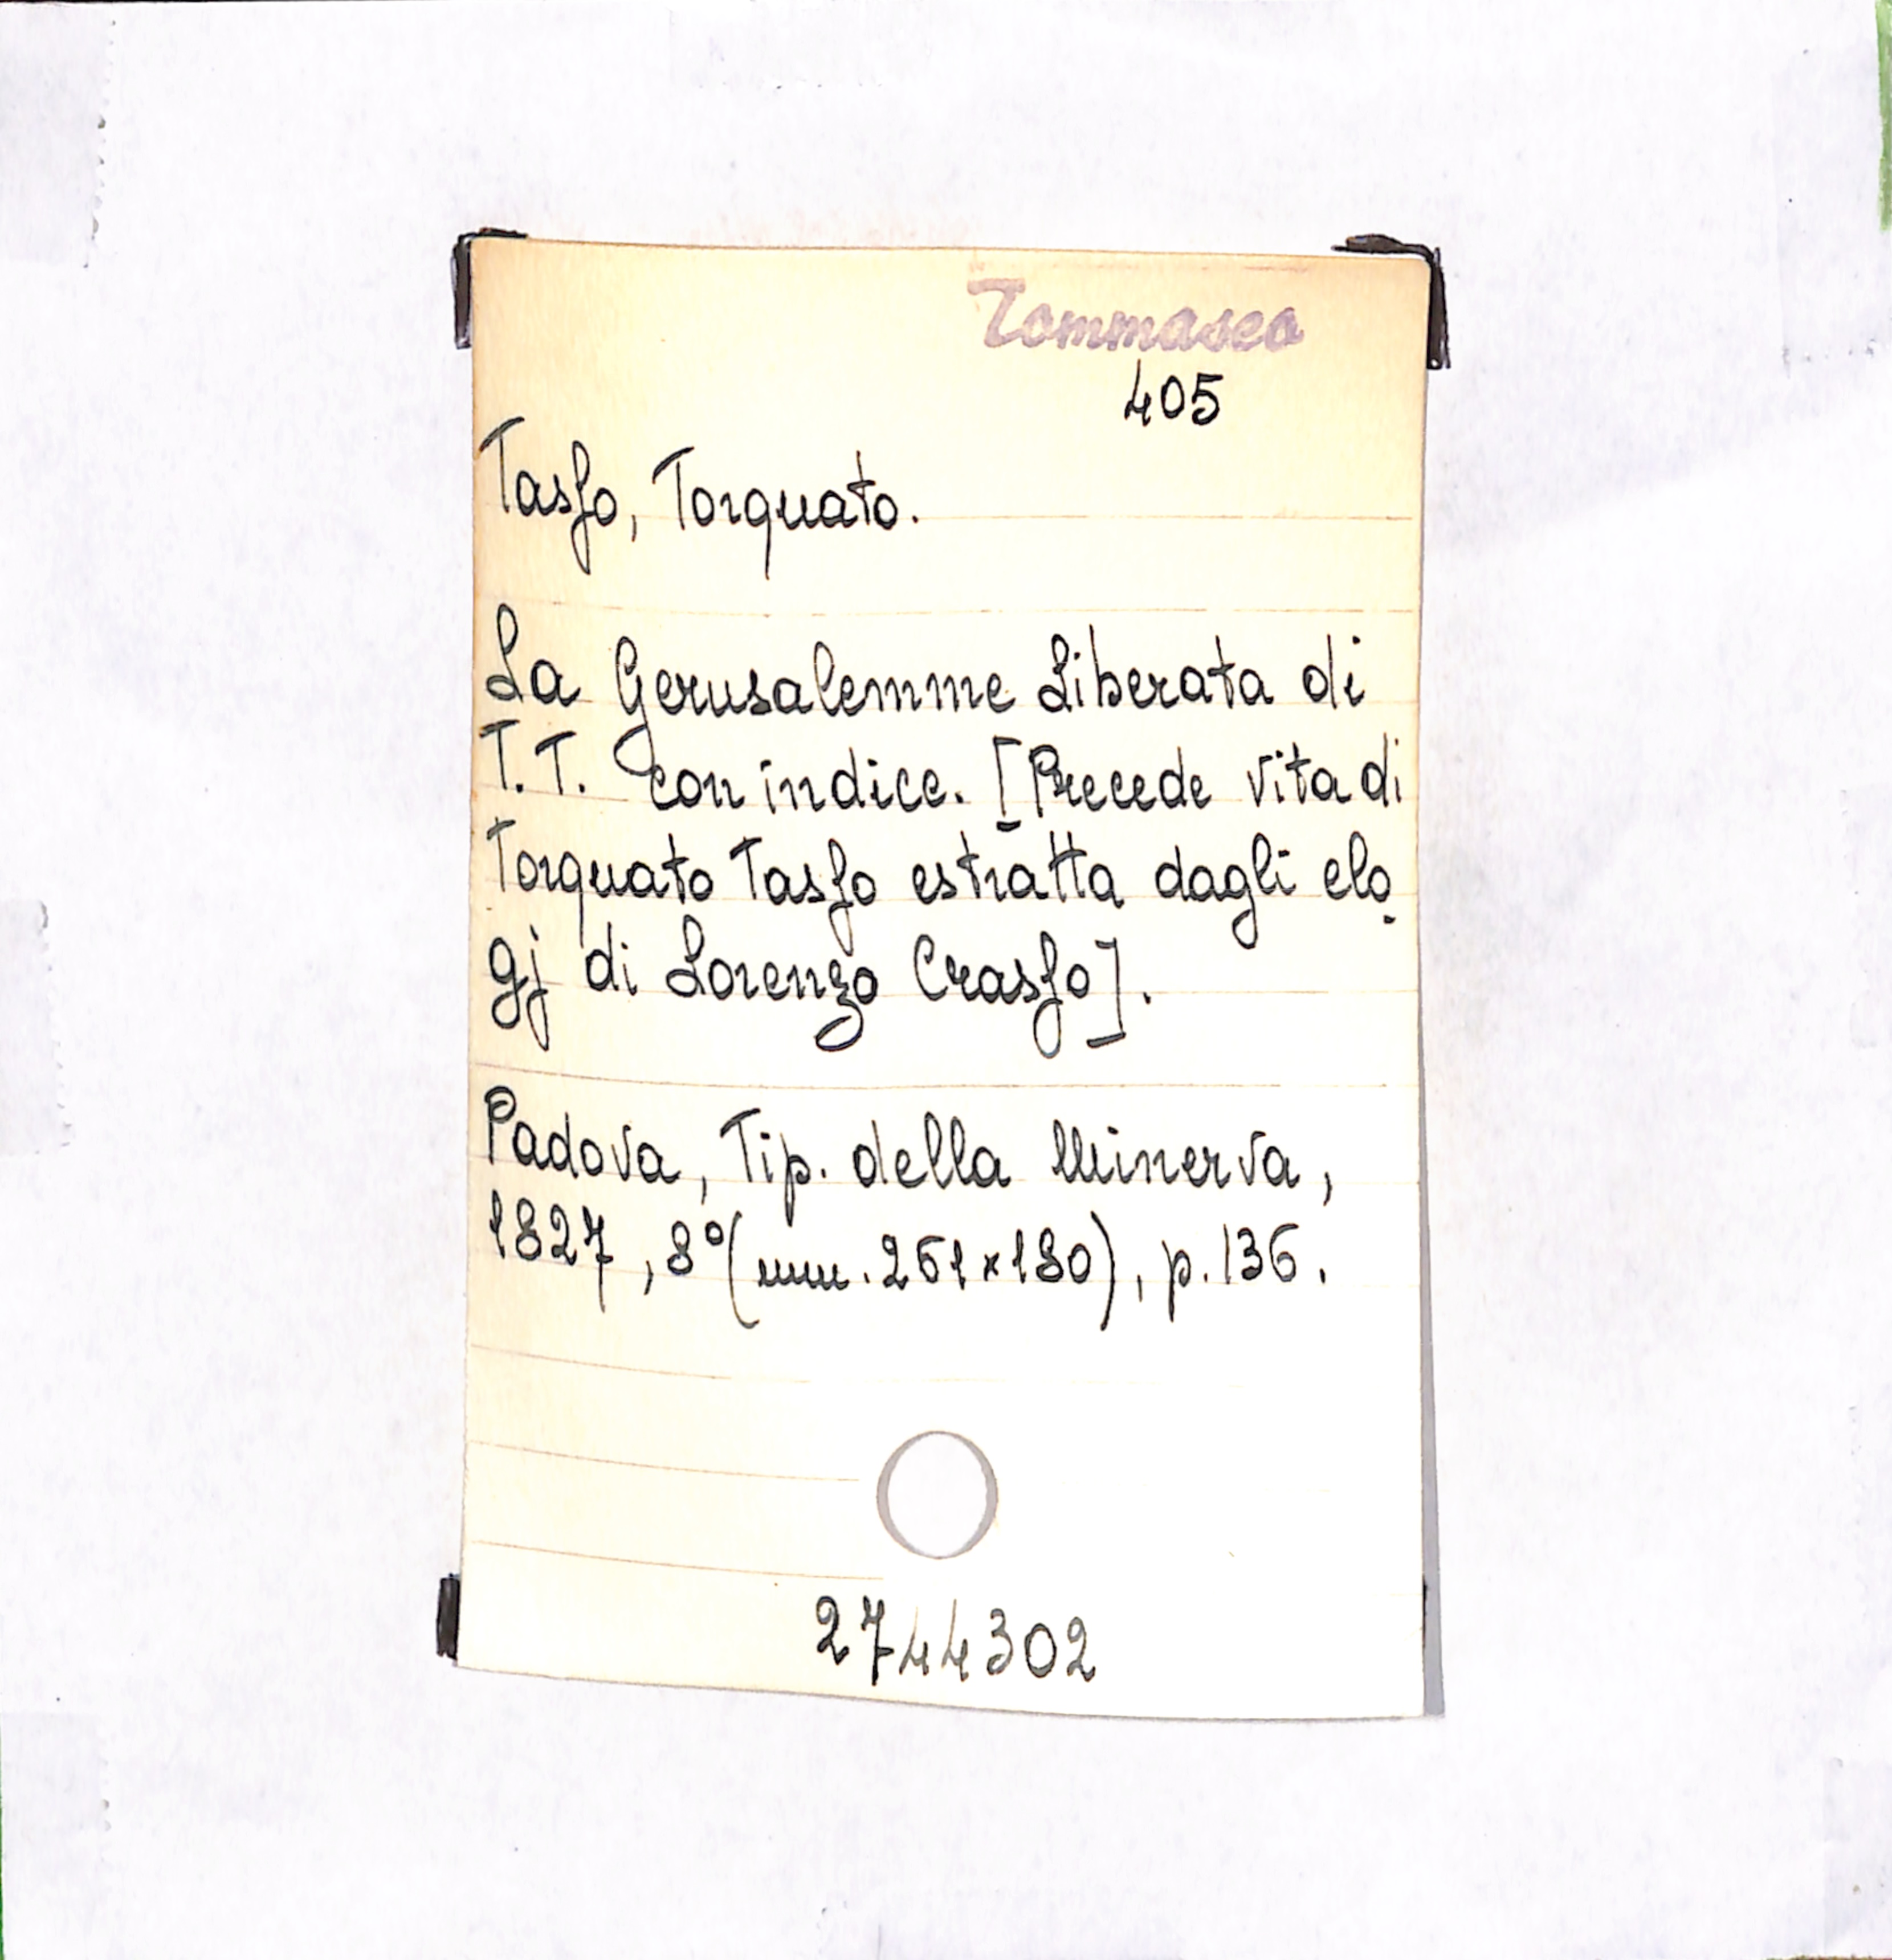 Tommaseo
405
Tasso, Torquato.
La Gerusalemme Liberata di
T.T. con indice. [Precede vita di
Torquato Tasso estratta dagli elo
gj di Lorenzo Crasso].
Padova, Tip. della Minerva,
1827, 8° (mm. 261×180), p. 136.
2744302